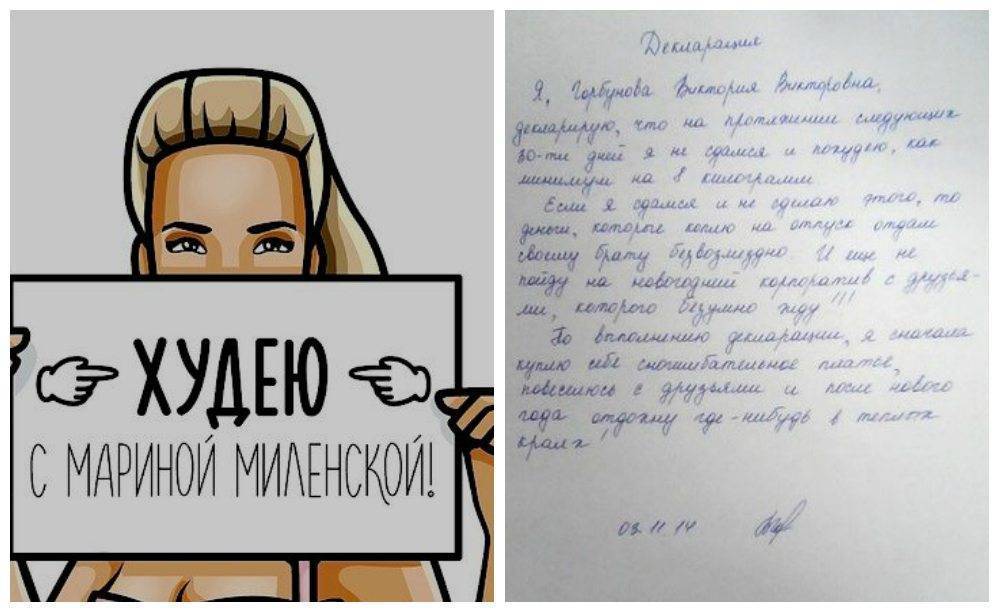 ХУДЕЮ
С МАРИНОЙ МИЛЕНСКОЙ!
Декларация
Я, Горбунова Виктория Викторовна,
декларирую, что на протяжении следующих
30-ти дней я не сдамся и похудею, как
минимум на 8 килограмм.
Если я сдамся и не сделаю этого, то
деньги, которые коплю на отпуск отдам
своему брату безвозмездно. И еще не
пойду на новогодний корпоратив с друзья-
ми, которого безумно жду!!!
По выполнению декларации, я сначала
куплю себе сногшибательное платье,
повеселюсь с друзьями и после нового
года отдохну где-нибудь в теплых
краях!
03.11.14